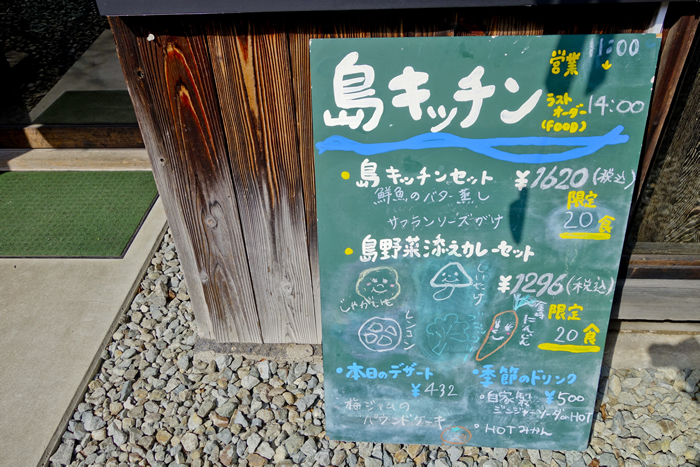 島キッチン
営業 11:00
ラストオーダー (FOOD) 14:00
島キッチンセット ¥1620(税込)
鮮魚のバター蒸し
サフランソースがけ
限定
20食
島野菜添えカレーセット
¥1296(税込)
限定
20食
じゃがいも
しいたけ
レンコン
にんじん
本日のデザート
¥432
梅ジャムの
パウンドケーキ
季節のドリンク
自家製 ¥500
ジンジャーソーダorHOT
HOTみかん